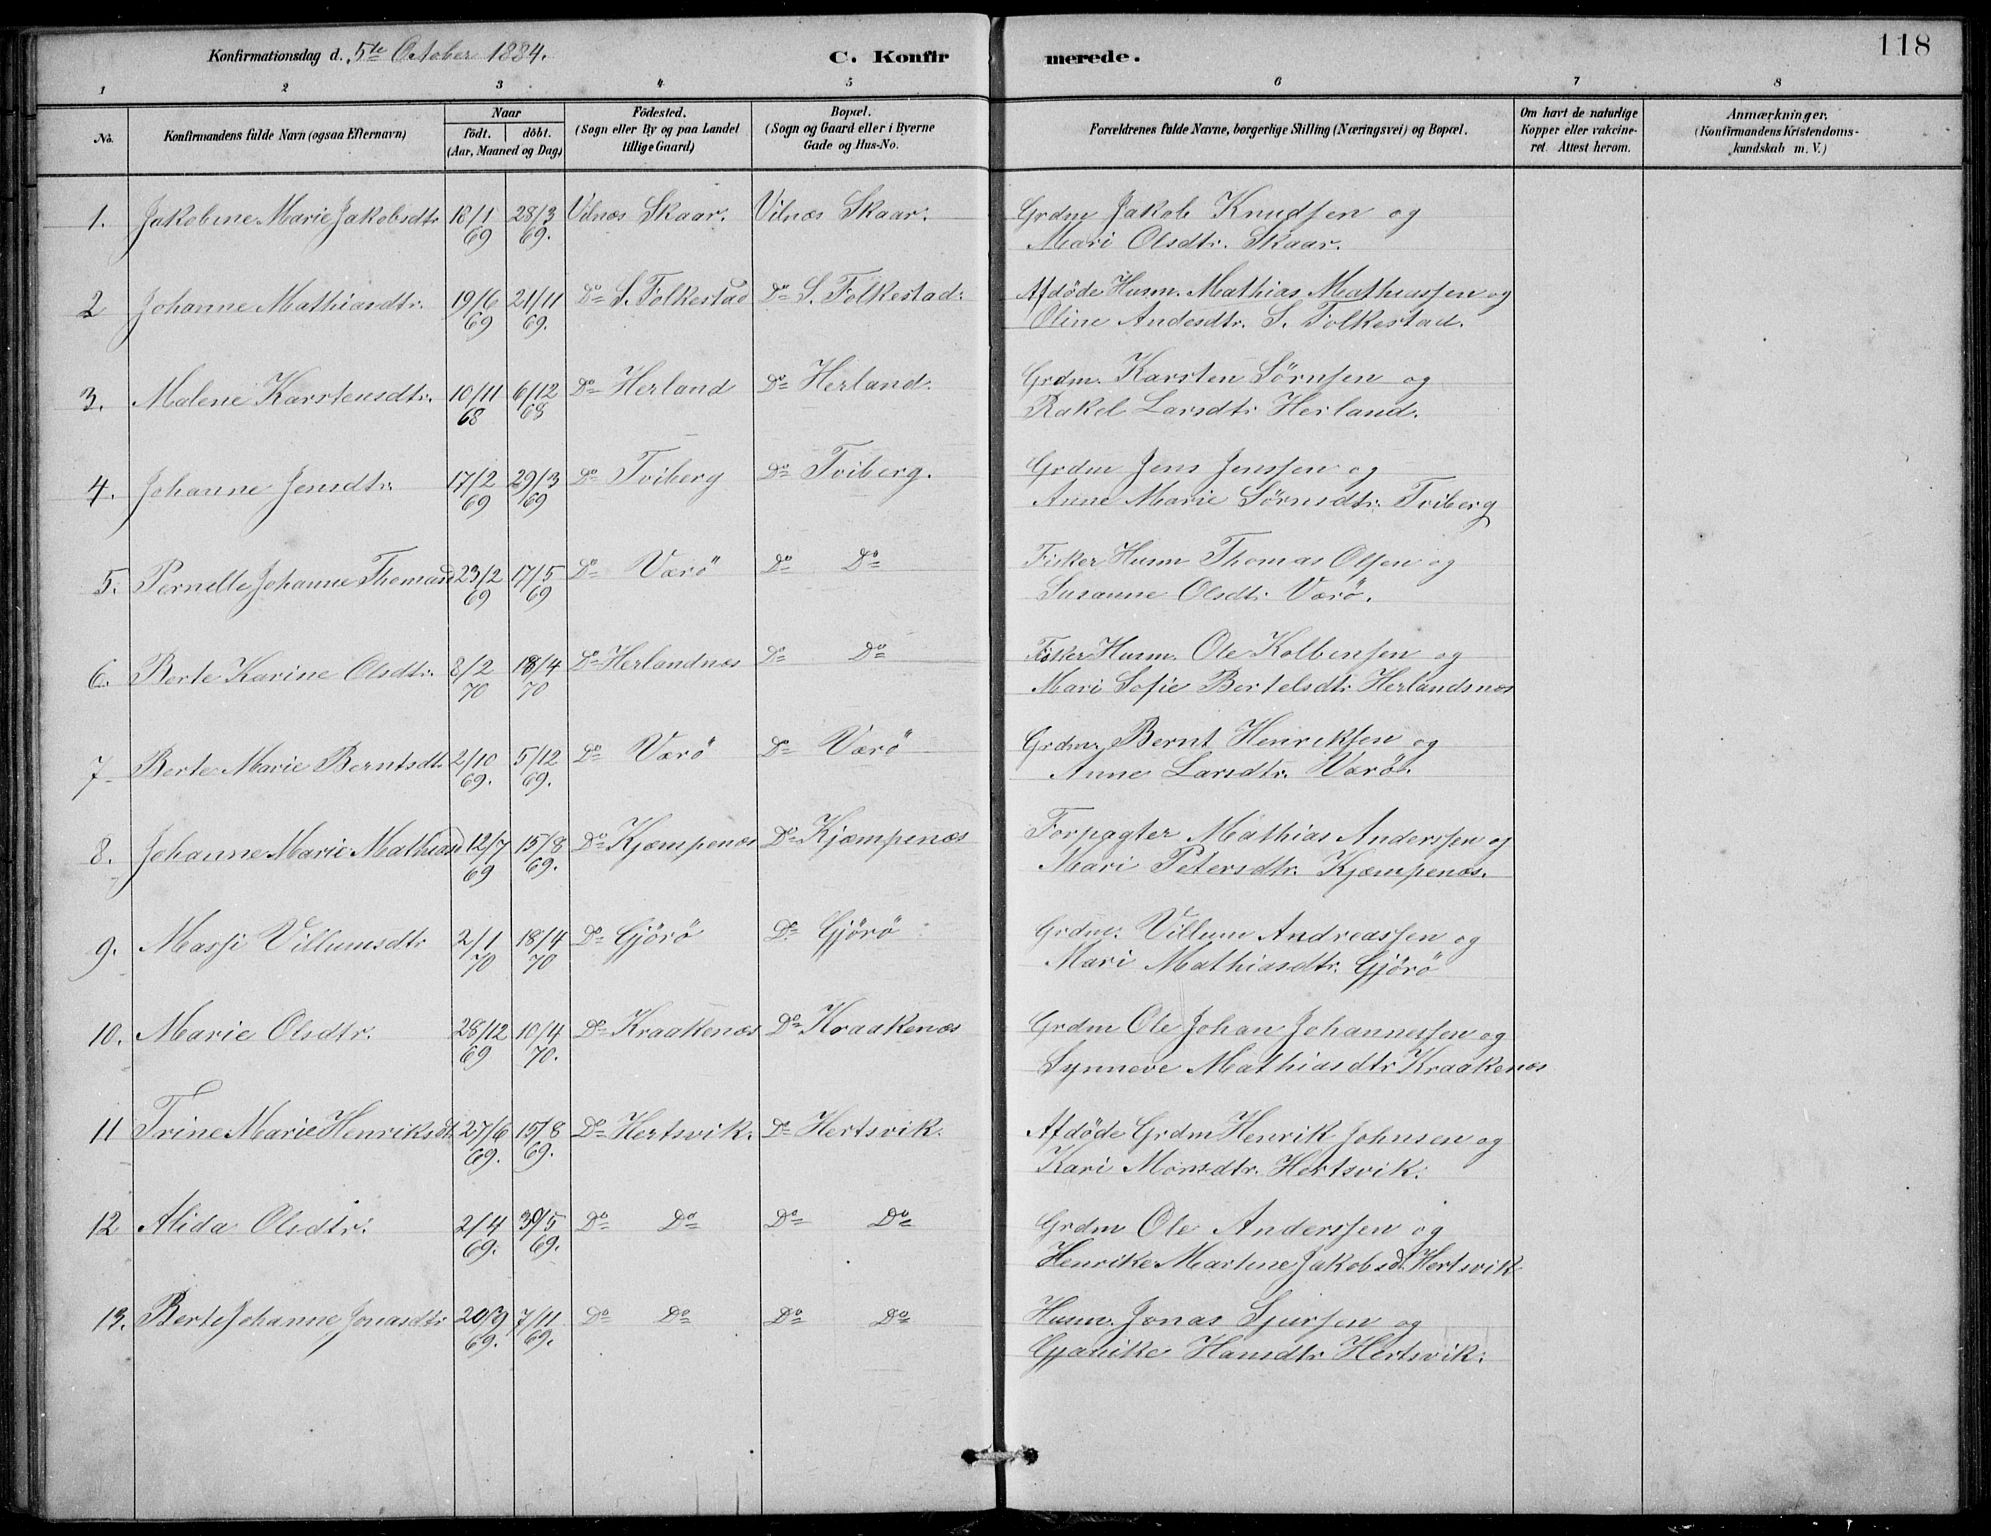 Konfirmationsdag d. 5te October 1884. C. Konfirmerede. 118
1 2 3 4 5 6 7 8
No. Konfirmandens fulde Navn (ogsaa Efternavn) Naar födt. döbt. (Aar, Maaned og Dag) Födested. (Sogn eller By og paa Landet tillige Gaard) Bopæl. (Sogn og Gaard eller i Byerne Gade og Hus-No. Forældrenes fulde Navne, borgerlige Stilling (Næringsvei) og Bopæl. Om havt de naturlige Kopper eller vakcineret. Attest herom. Anmærkninger. (Konfirmandens Kristendomskundskab m. V.)
1. Jakobine Marie Jakobsdtr 18/1 69 28/3 69. Vilnæs Skaar. Vilnæs Skaar. Grdm Jakob Knudsen og
Mari Olsdtr. Skaar.
2 Johanne Mathiasdtr. 19/6 69 21/11 69. Do S. Folkestad Do S. Folkestad. Afdöde Husm. Mathias Mathiassen og
Oline Andesdtr. S. Folkestad.
3. Malene Karstensdtr. 10/11 68 6/12 68 Do Herland Do Herland. Grdm. Karsten Sörnsen og
Rakel Larsdtr Herland.
4. Johanne Jensdtr. 17/2 69 29/3 69 Do Tviberg Do Tviberg. Grdm Jens Jenssen og
Anne Marie Sörnsdtr. Tviberg
5. Pernelle Johanne Thomasd 23/2 69 17/5 69 Do Værö Do Do Fisker Husm Thomas Olsen og
Susanne Olsdtr Værö.
6. Berte Karine Olsdtr. 8/2 70 18/4 70 Do Herlandnæs Do Do Fisker Husm. Ole Kolbensen og
Mari Sofie Bertelsdtr Herlandsnæs
7. Berte Marie Berntsdtr 2/10 69. 5/12 69. Do Værö Do Værö Grdm. Bernt Henriksen og
Anne Larsdtr. Værö.
8. Johanne Marie Mathiasd 12/7 69 15/8 69. Do Kjæmpenæs Do Kjæmpenæs Forpagter Mathias Anderssen og
Mari Petersdtr. Kjæmpenæs.
9. Massi Villumsdtr 2/1 70 18/4 70 Do Gjörö Do Gjörö Grdm. Villum Andreassen og
Mari Mathiasdtr. Gjörö
10. Marie Olsdtr. 28/12 69 10/4 70. Do Kraakenæs Do Kraakenæs Grdm Ole Johan Johannessen og
Synneve Mathiasdtr Kraakenæs
11 Trine Marie Henriksdt. 27/6 69. 15/8 69. Do Hertsvik. Do Hertsvik. Afdöde Grdm Henrik Johnsen og
Kari Monsdtr. Hertsvik.
12 Alida Olsdtr. 2/4 69. 30/5 69. Do Do Do Do Grdm Ole Anderssen og
Henrike Martine Jakobsd. Hertsvik
13. Berte Johanne Jonasdtr 20/3 69. 7/11 69. Do Do Do Do Husm. Jonas Sjursen og
Hansdtr Hertsvik.